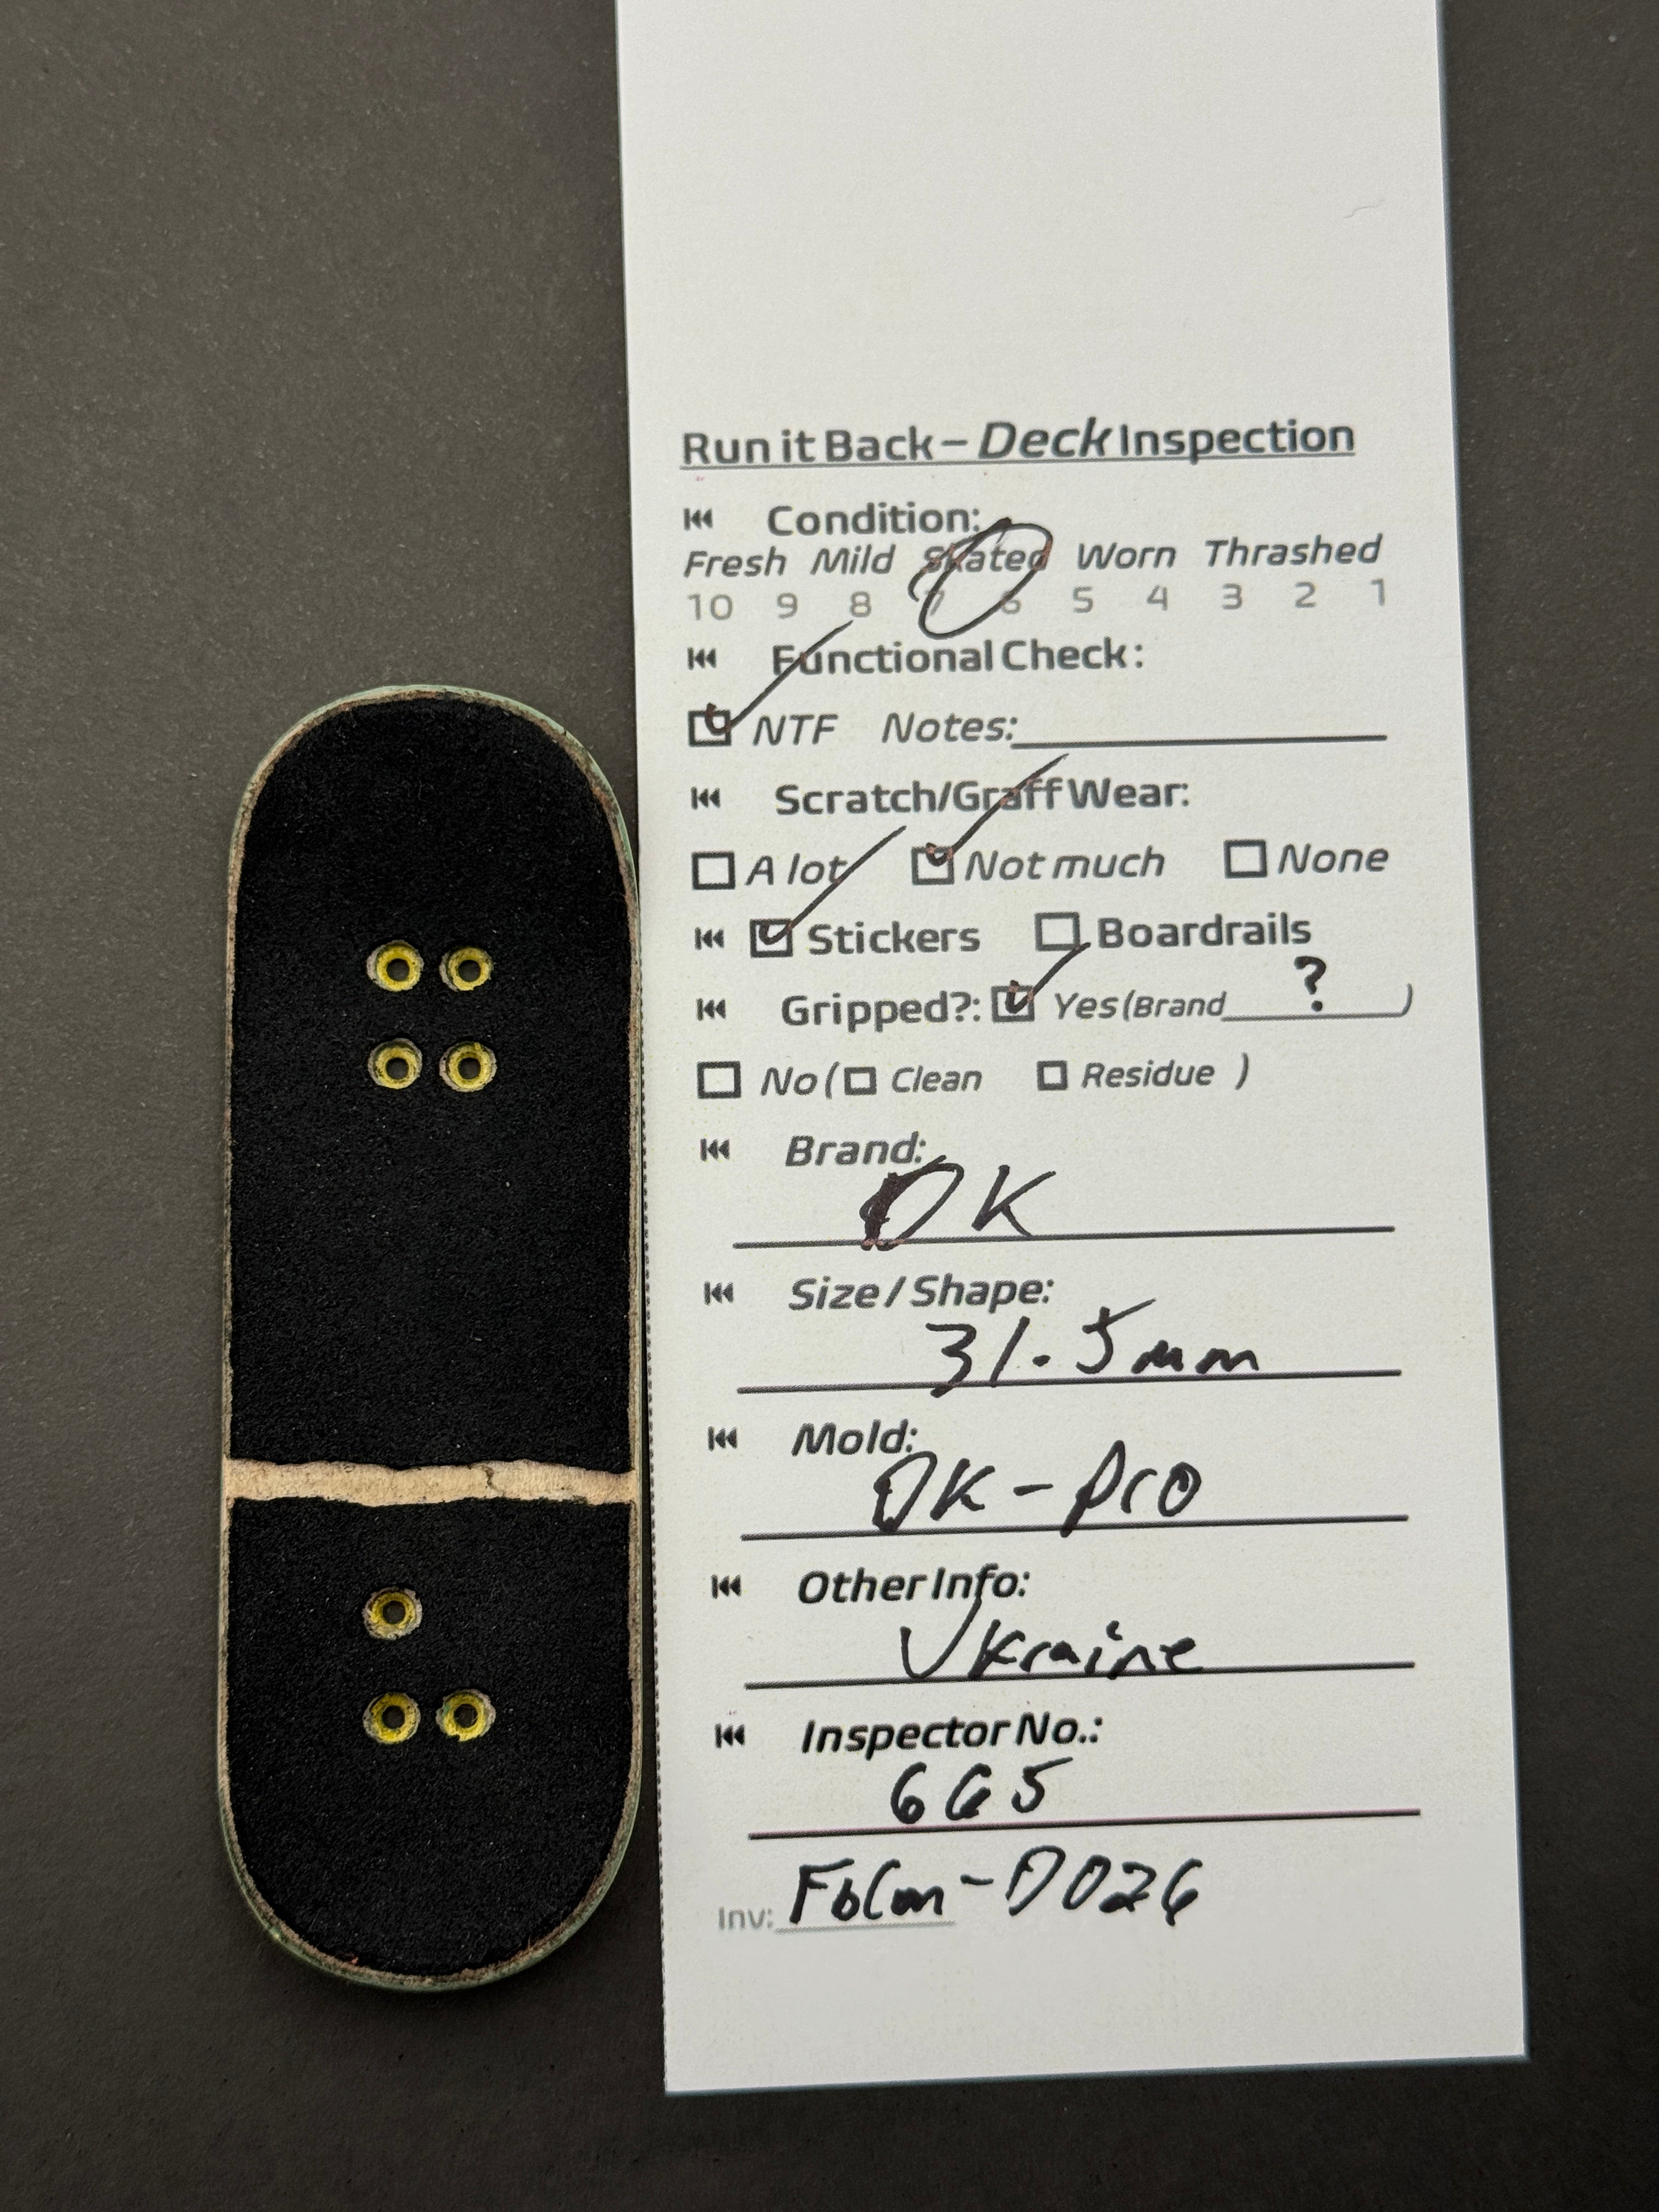 Run it Back – Deck Inspection
Condition:
Fresh Mild Skated Worn Thrashed
10 9 8 7 6 5 4 3 2 1
Functional Check:
NTF Notes:
Scratch/Graff Wear:
A lot Not much None
Stickers Boardrails
Gripped?: Yes (Brand ? )
No ( Clean Residue )
Brand:
OK
Size / Shape:
31.5mm
Mold:
OK - Pro
Other Info:
Ukraine
Inspector No.:
665
Inv: -D026